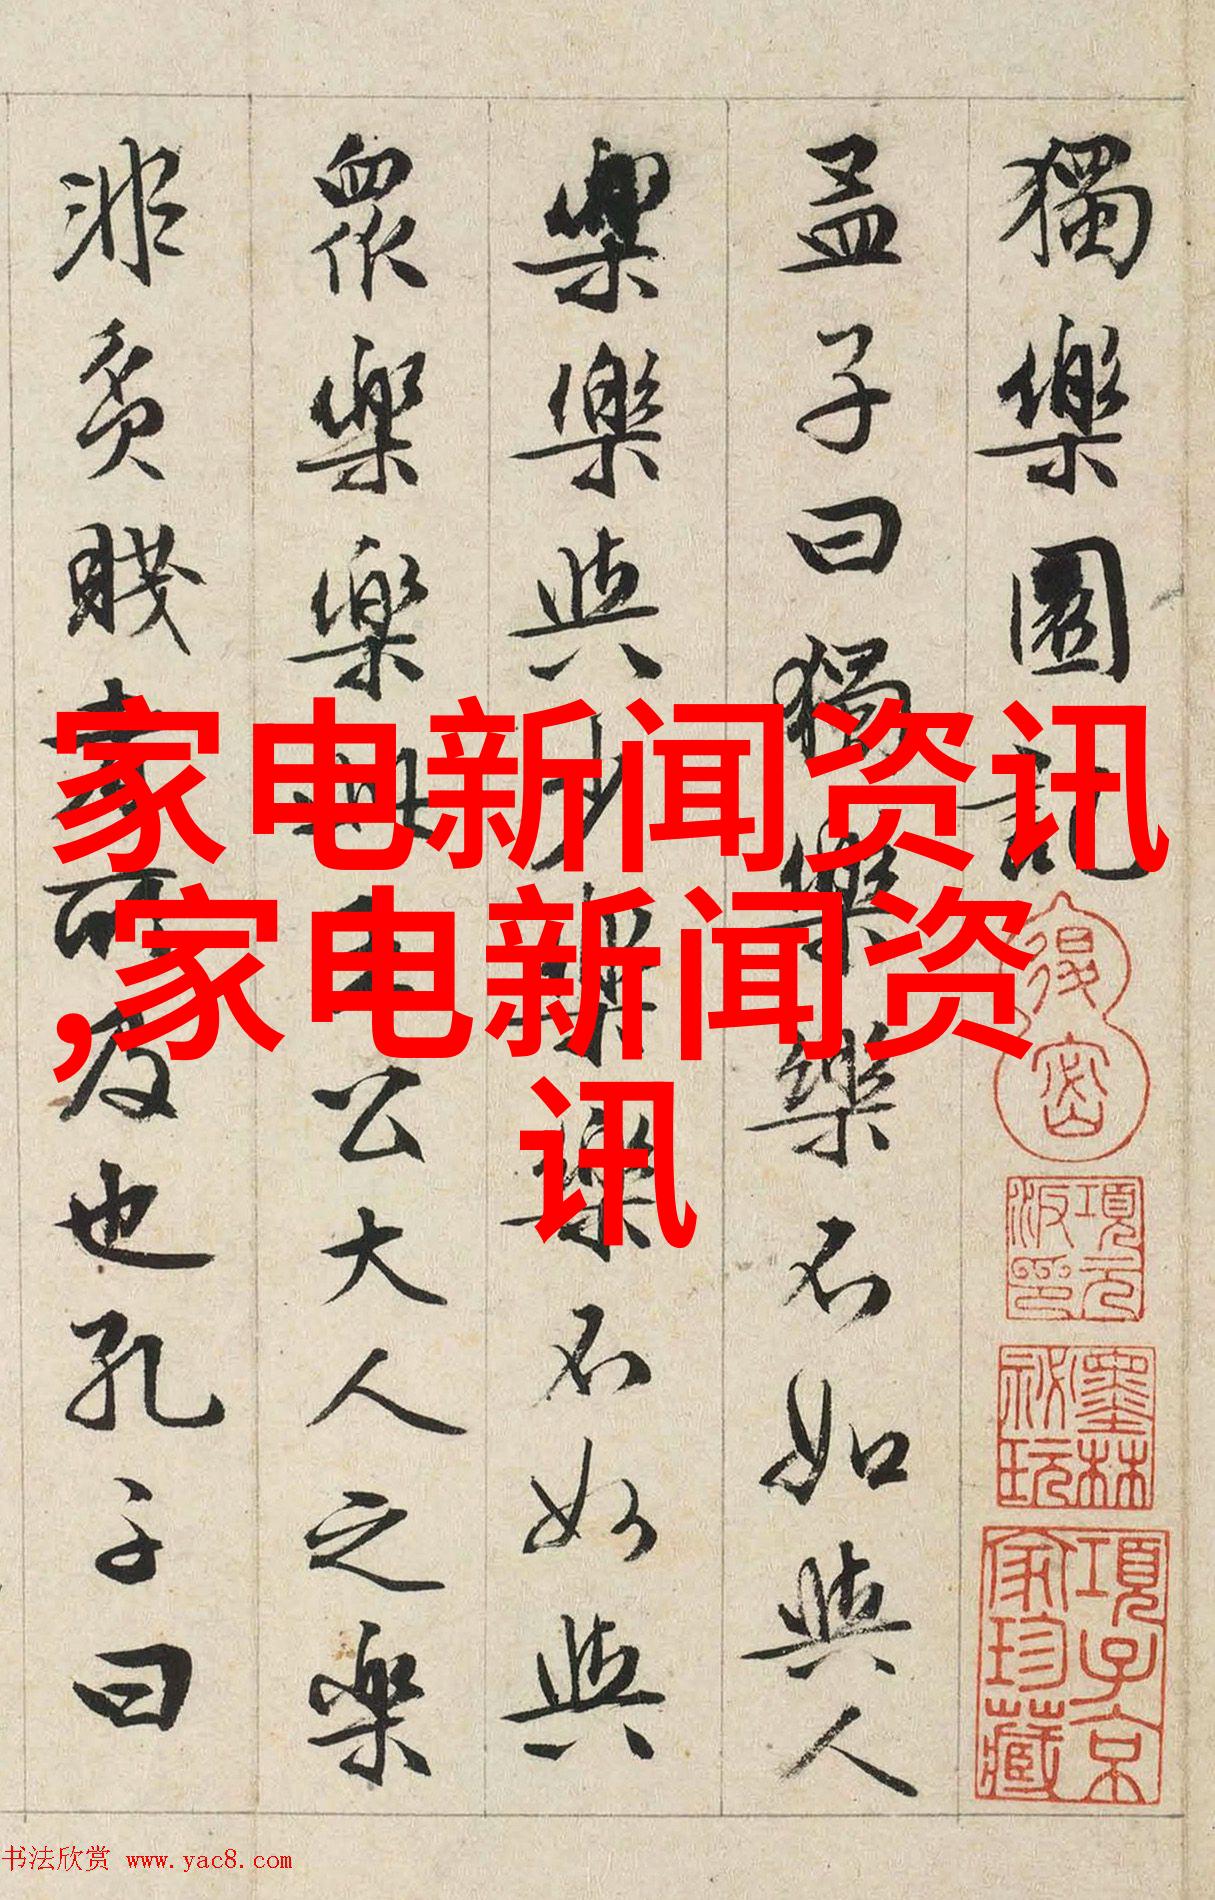 獨樂園記
孟子曰獨樂樂不如與人
樂樂與少樂樂不如與
眾樂樂此王公大人之樂
非貧賤者所及也孔子曰
退密
項元汴印
墨林祕玩
項子京家珍藏
家电新闻资讯
,家电新闻资
讯
书法欣赏 www.yac8.com